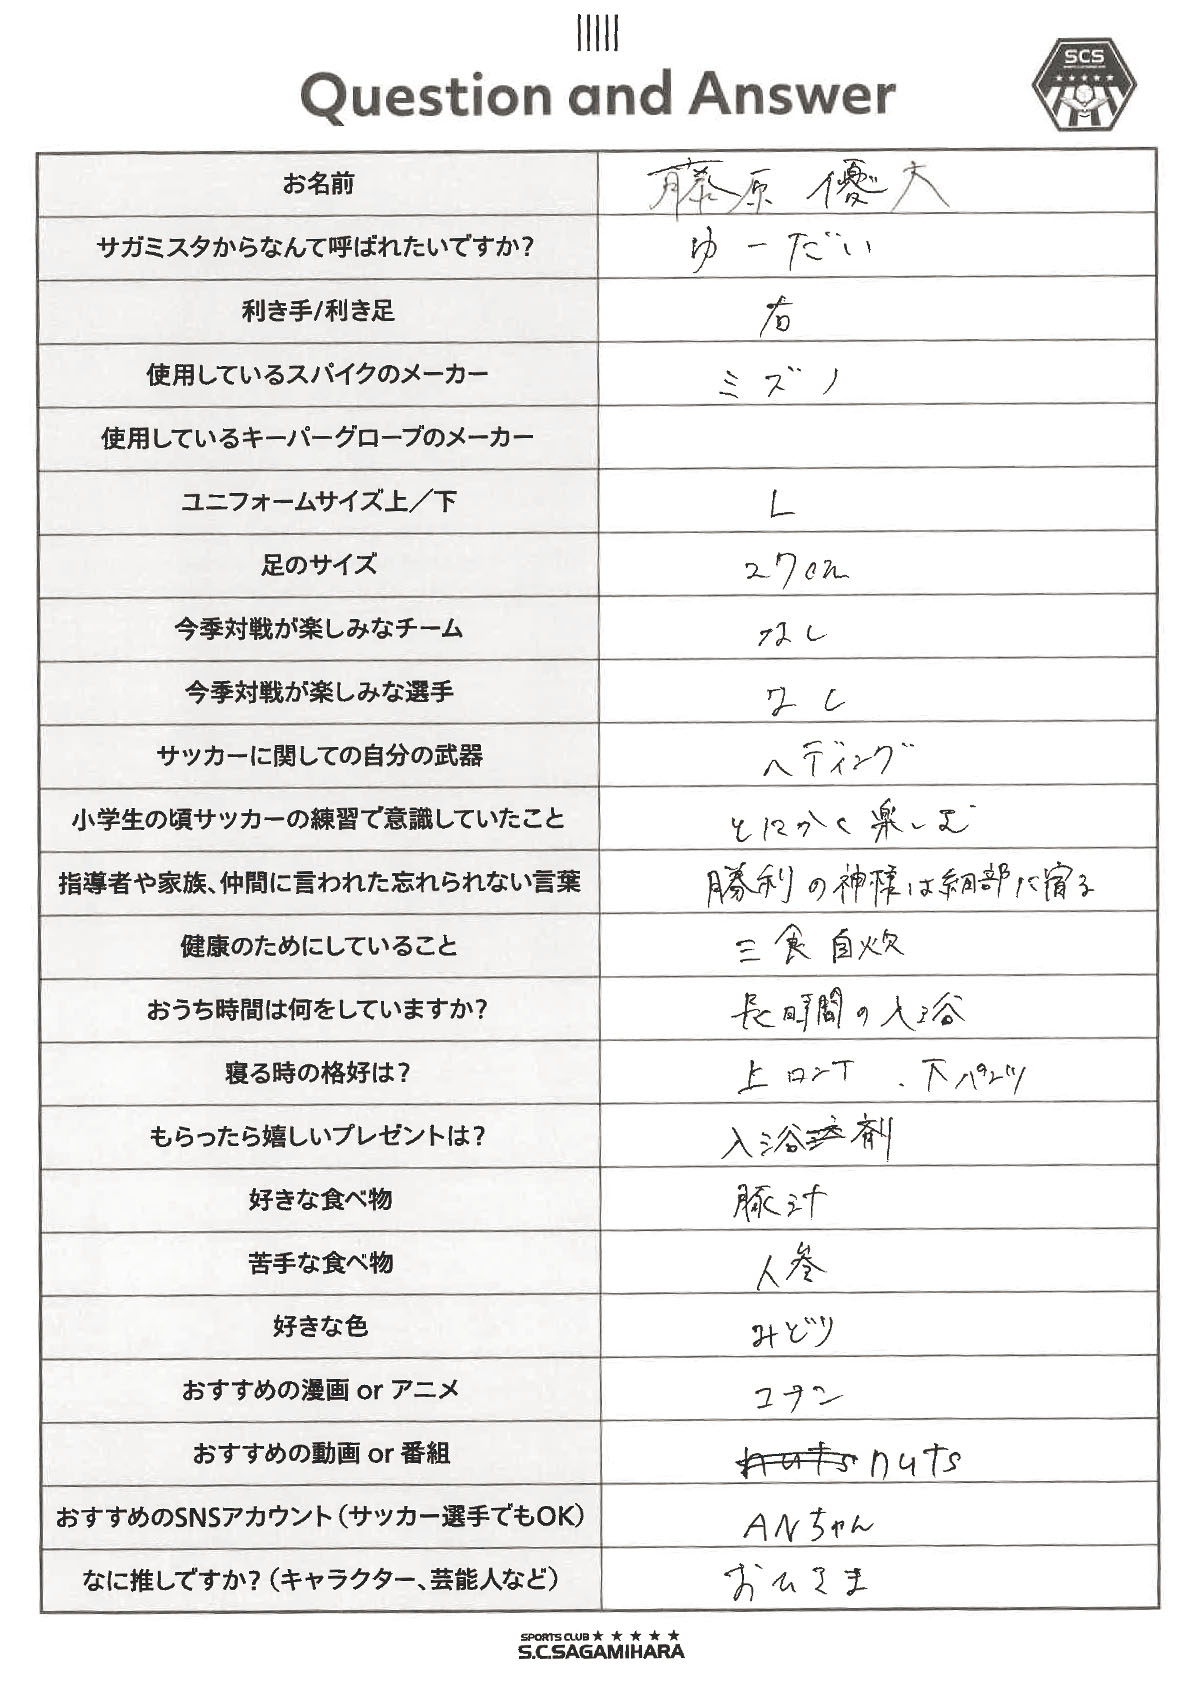 Question and Answer
SCS
お名前 藤原 優大
サガミスタからなんて呼ばれたいですか? ゆーだい
利き手/利き足 右
使用しているスパイクのメーカー ミズノ
使用しているキーパーグローブのメーカー
ユニフォームサイズ上／下 L
足のサイズ 27cm
今季対戦が楽しみなチーム なし
今季対戦が楽しみな選手 なし
サッカーに関しての自分の武器 ヘディング
小学生の頃サッカーの練習で意識していたこと とにかく楽しむ
指導者や家族、仲間に言われた忘れられない言葉 勝利の神様は細部に宿る
健康のためにしていること 三食自炊
おうち時間は何をしていますか? 長時間の入浴
寝る時の格好は? 上ロンT、下パンツ
もらったら嬉しいプレゼントは? 入浴剤
好きな食べ物 豚汁
苦手な食べ物 人参
好きな色 みどり
おすすめの漫画 or アニメ コナン
おすすめの動画 or 番組 nuts nuts
おすすめのSNSアカウント（サッカー選手でもOK） ANちゃん
なに推しですか?（キャラクター、芸能人など） おひさま
SPORTS CLUB ★★★★★
S.C.SAGAMIHARA